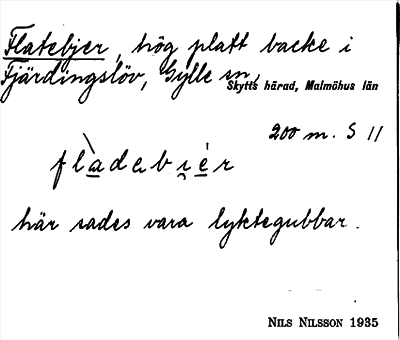 Flatebjer, hög platt backe i
Fjärdingslöv, Gylle sn,
Skytts härad, Malmöhus län
200 m. S 11
fl̀a̲debi̯é̲r
här sades vara lyktegubbar.
NILS NILSSON 1935